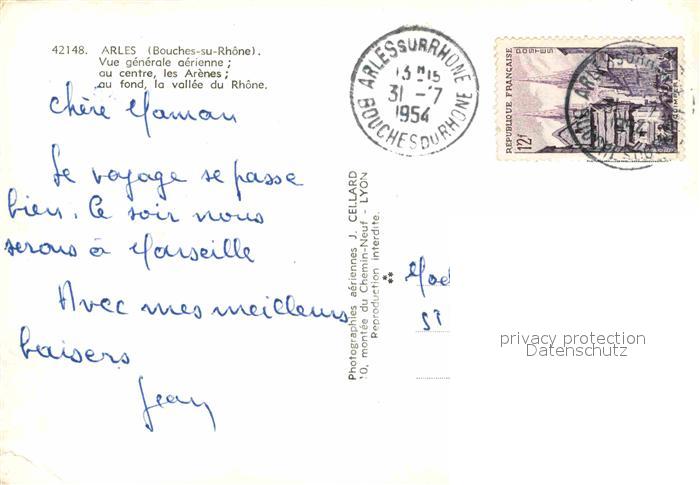 42148. ARLES (Bouches-su-Rhône).
Vue générale aérienne ;
au centre, les Arènes ;
au fond, la vallée du Rhône.
Chère Maman
Le voyage se passe
bien. Ce soir nous
serons à Marseille
Avec mes meilleurs
baisers
Jean
ARLES SUR RHONE
13 H 15
31 -7
1954
BOUCHES DU RHONE
POSTES
REPUBLIQUE FRANÇAISE
12f
QUIMPER
Photographies aériennes J. CELLARD
10, montée du Chemin-Neuf - LYON
Reproduction interdite.
**
privacy protection
Datenschutz